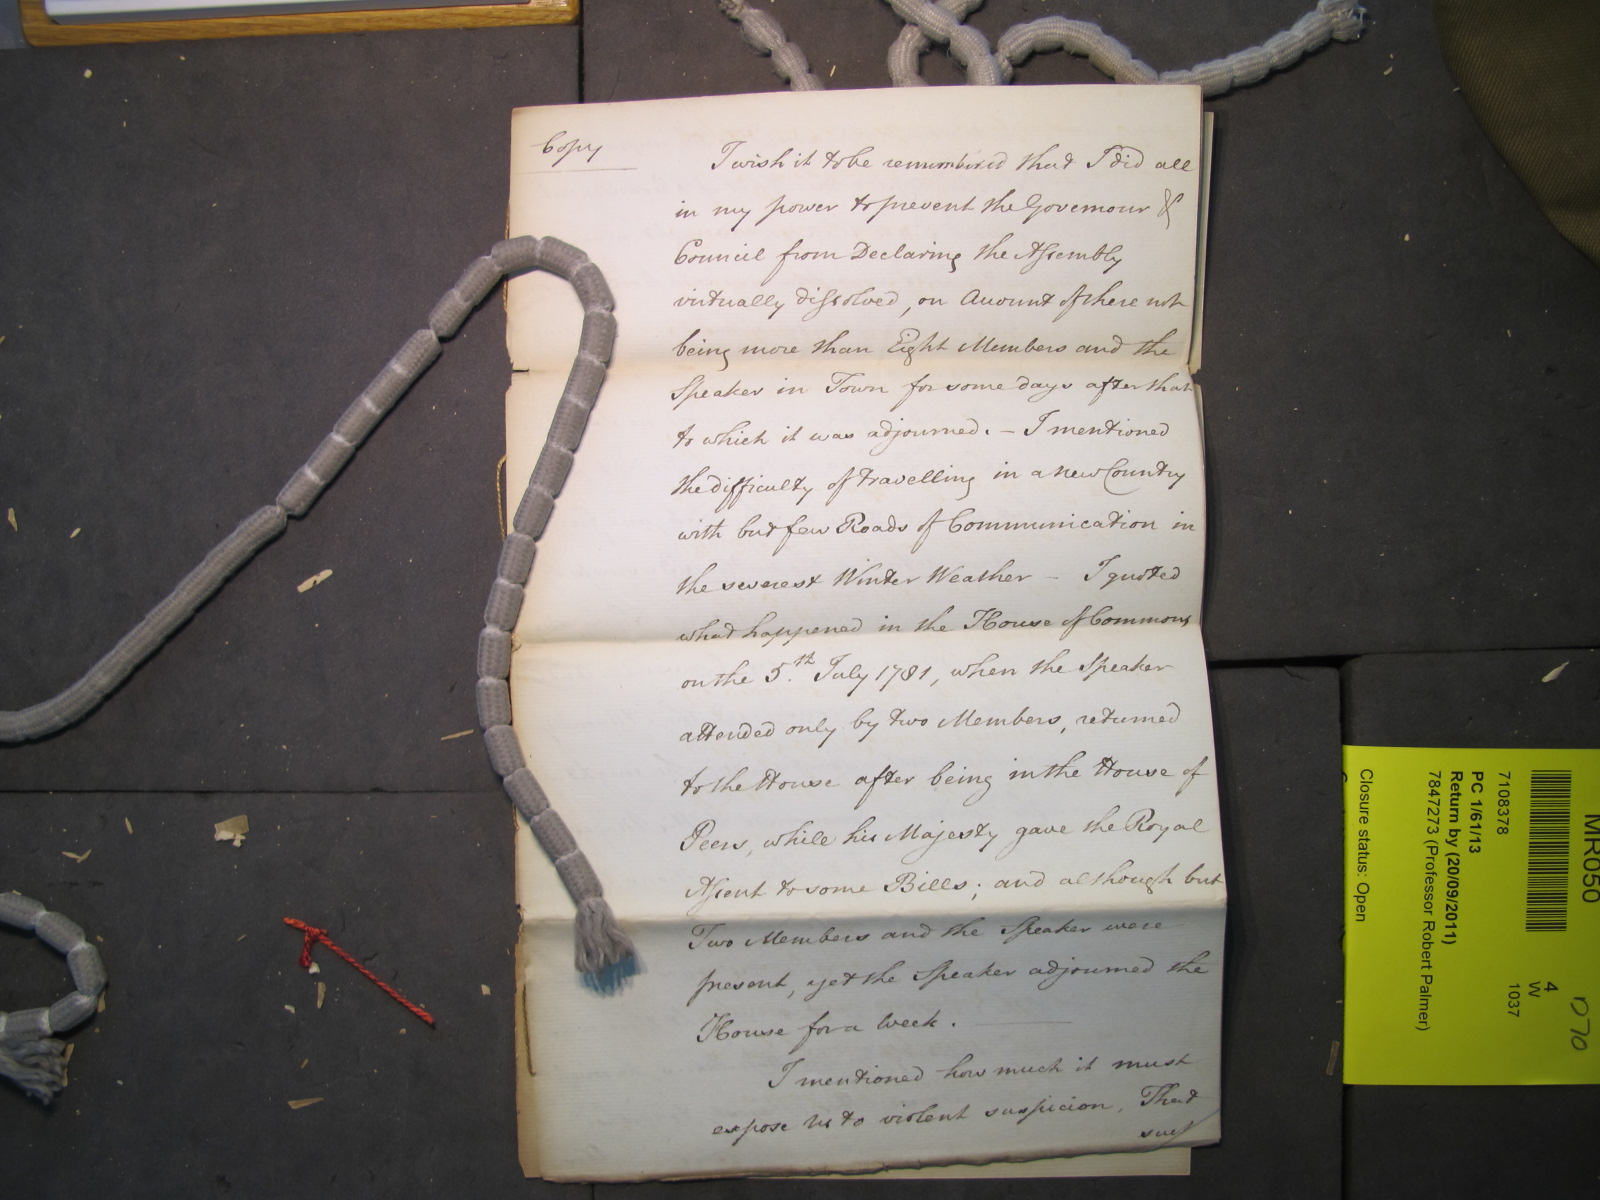 Copy
I wish it to be remembered that I did all
in my power to prevent the Governour &
Council from Declaring the Assembly
virtually dissolved, on Account of there not
being more than Eight Members and the
Speaker in Town for some days after that
to which it was adjourned. – I mentioned
the difficulty of travelling in a new Country
with but few Roads of Communication in
the severest Winter Weather – I quoted
what happened in the House of Commons
on the 5.th July 1781, when the Speaker
attended only by two Members, returned
to the House after being in the House of
Peers, while his Majesty gave the Royal
Assent to some Bills; and although but
Two Members and the Speaker were
present, yet the Speaker adjourned the
House for a Week.
I mentioned how much it must
expose us to violent suspicion, That
such
MR050
4
W
1037
D70
7108378
PC 1/61/13
Return by (20/09/2011)
7847273 (Professor Robert Palmer)
Closure status: Open